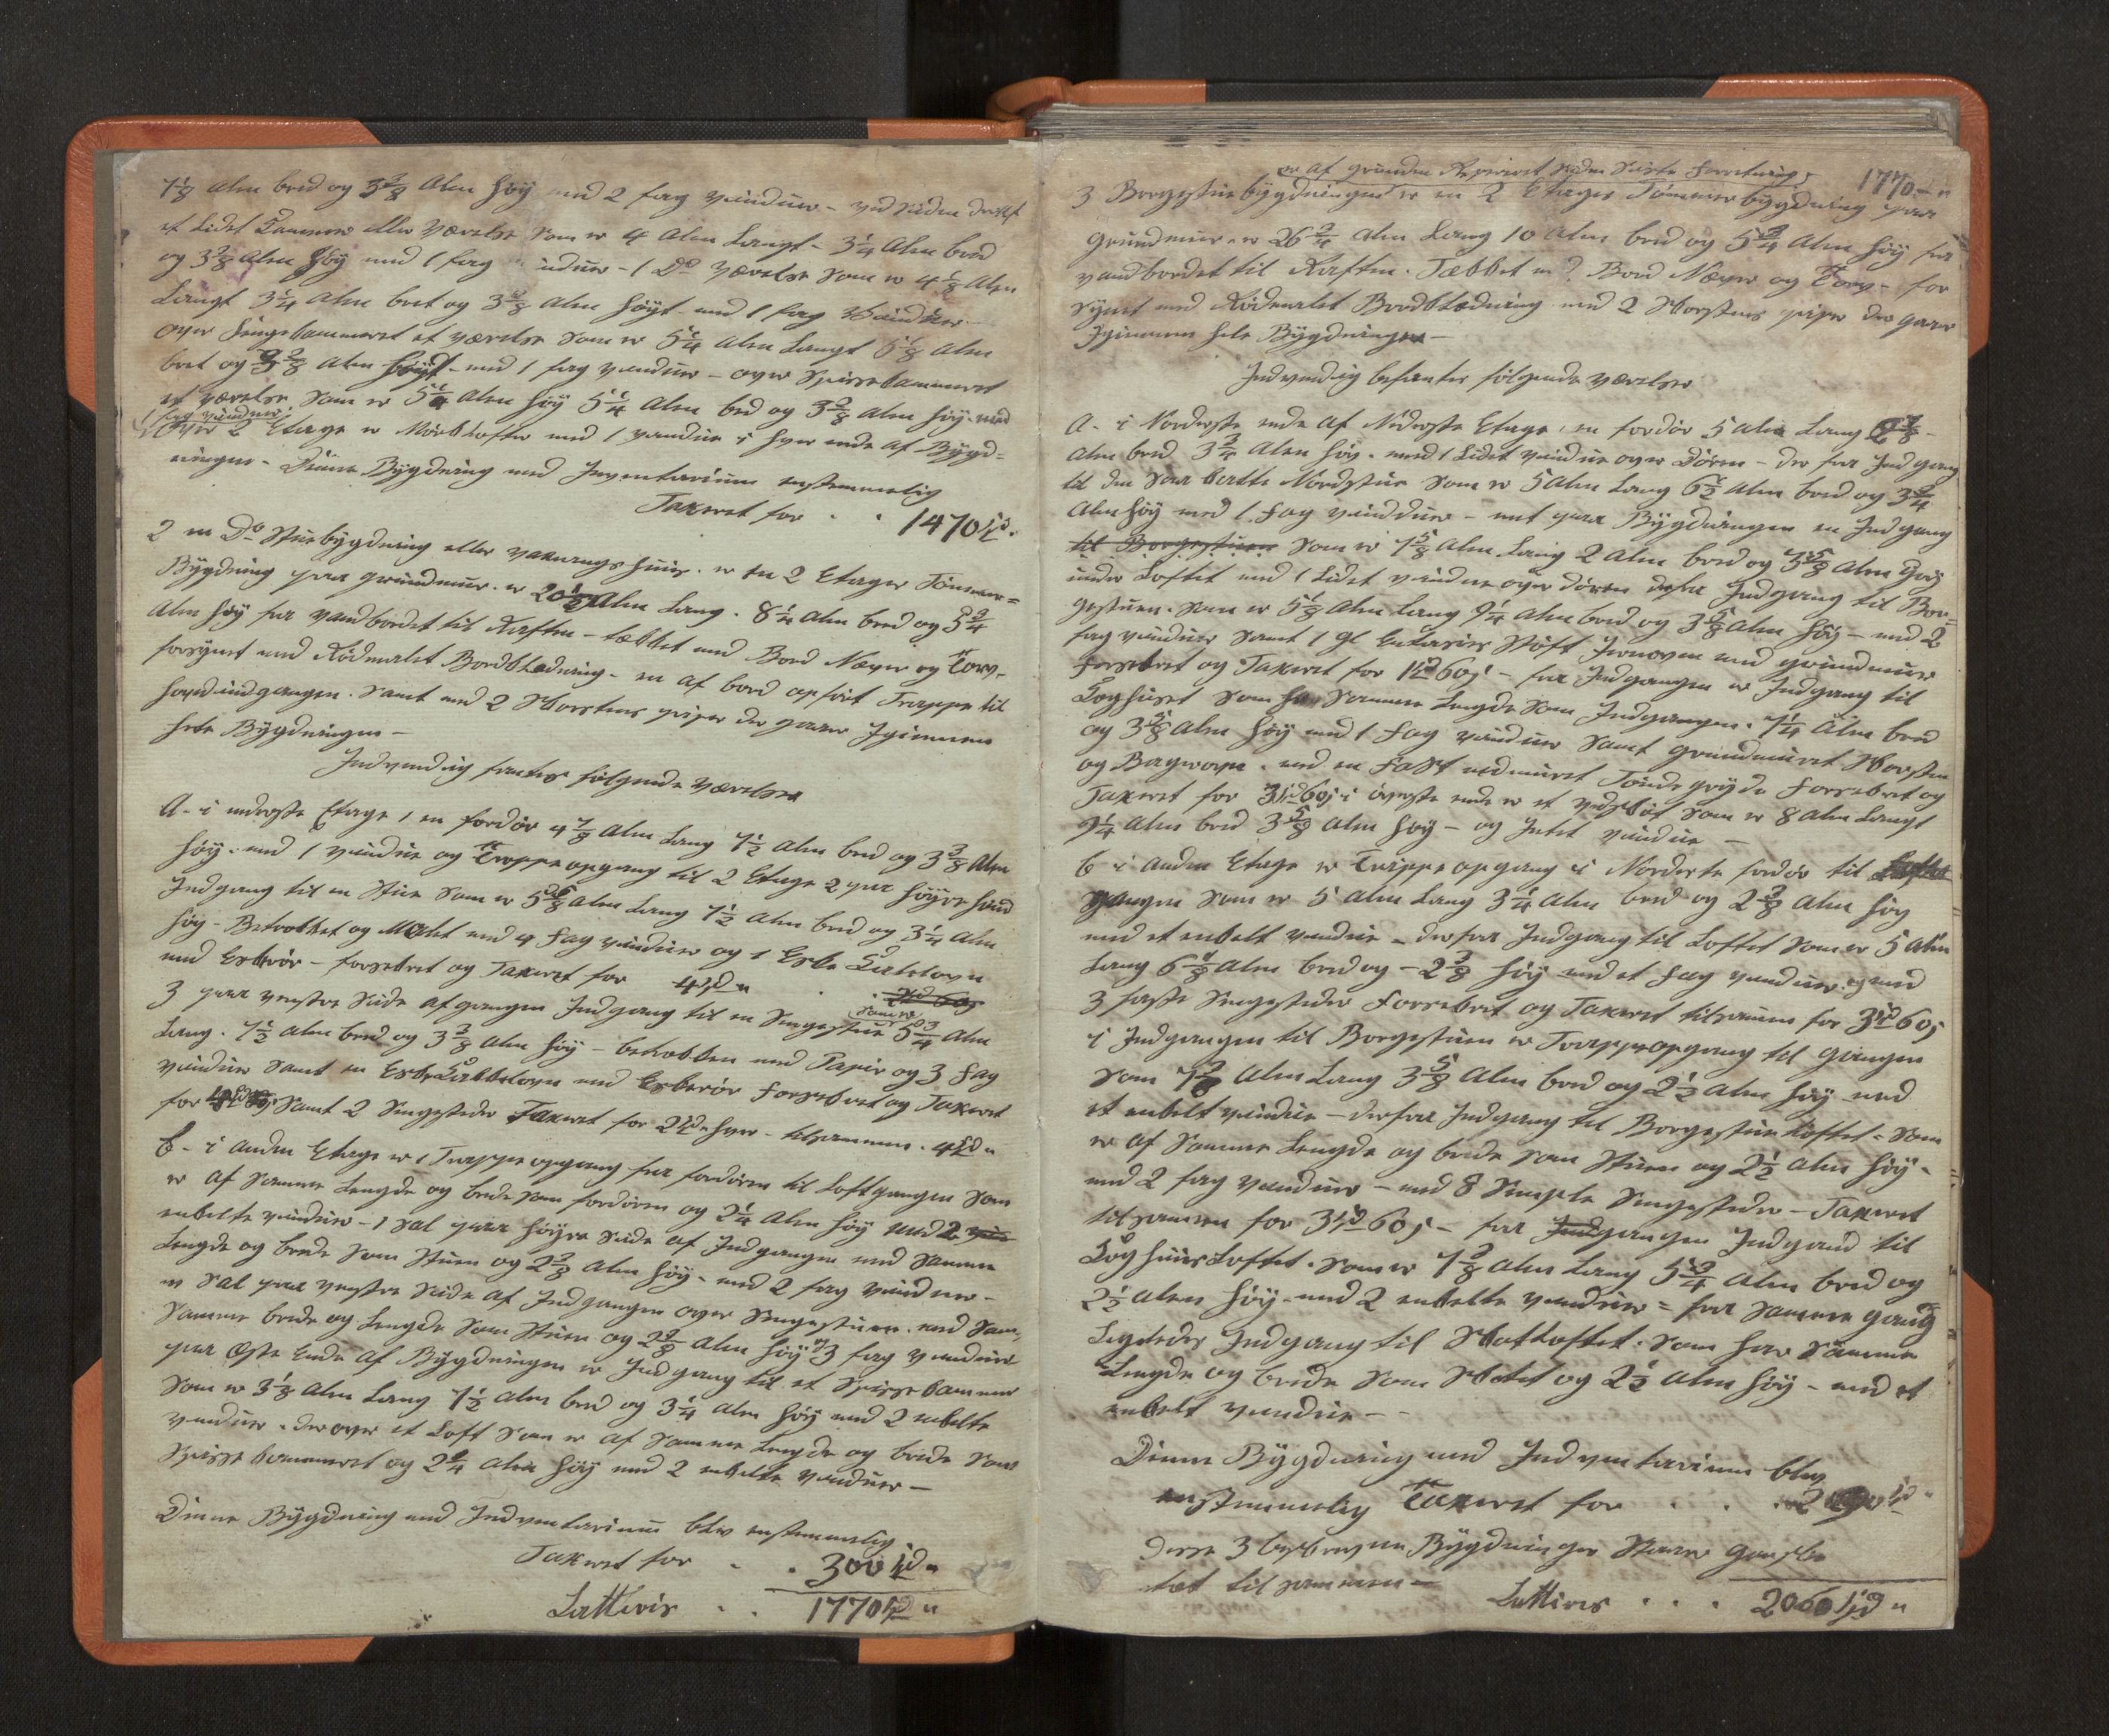 7 1/8 Alen bred og 3 3/8 Alen höy med 2 fag vinduer - ved Siden deraf
et Lidet Kammer eller værelse som er 4 Alen Langt - 3 1/4 Alen bred
og 3 3/8 Alen höy med 1 fag vinduer - 1 Do værelse som er 4 1/8 Alen
Langt 3 1/4 Alen bret og 3 3/8 Alen höyt - med 1 fag Vinduer -
over Sengekammeret et værelse som er 5 1/4 Alen Langt 5 1/8 Alen
bret og 3 3/8 Alen höyt - med 1 fag vinduer - over Spissekammeret
et værelse som er 5 1/4 Alen höy 5 1/4 Alen bred og 3 3/8 Alen höy med
1 fag vinduer
Over 2 Etage er Mörklofter med 1 vindue i hver ende af Bygd=
ningen - Denne Bygdning med Inventarium enstemmelig
Taxeret for . . 1470 Spd.
2 en Do Stuebygdning eller vaanings huus. er en 2 Etager Tömmer=
Bygdning paa grundmuur. er 20 Alen Lang. 8 1/4 Alen bred og 5 3/4
Alen höy fra vandbordet til Raften - tækket med Bord Næver og Torv -
forsynet med Rödmalet Bordklædning - en af bord opfört Trappe til
hovedindgangen. samt med 2 Skorstens piper der gaar Igiennem
hele Bygdningen -
Indvendig fantes fölgende værelser
A - i nederste Etage 1 en fordör 4 7/8 Alen Lang 7 1/2 Alen bred og 3 3/8 Alen
höy. med 1 vindue og Trappeopgang til 2 Etage 2 paa höyre haand
Indgang til en Stue som er 5 Alen Lang 7 1/2 Alen bred og 3 1/4 Alen
höy - Betrækket og Malet med 4 fag vinduer og 1 Kakelovn
med - forsikret og Taxeret for 4 Spd "
3 paa venstre Side af gangen Indgang til en Sengestue som er 5 3/4 Alen
Lang. 7 1/2 Alen bred og 3 3/8 Alen höy - betrækken med Papir og 3 fag
vinduer samt en Kakkelovn med forsikret og Taxeret
for samt 2 Sengesteder Taxeret for 2 Spd hver - tilsammen. 4 Spd "
b - i anden Etage er 1 Trappeopgang fra fordören til Loftgangen som
er af samme Lengde og brede som fordören og 2 1/4 Alen höy med 2
enkelte vinduer - 1 Sal paa höyre Side af Indgangen med samme
Lengde og brede som Stuen og 2 3/8 Alen höy. med 2 fag vinduer -
en Sal paa venstre Side af Indgangen over Sengestuen. med sam,
samme brede og Lengde som Stuen og 2 3/8 Alen höy og 3 fag vinduer
paa Öste Ende af Bygdningen er Indgang til et Spissekammer
som er 3 1/8 Alen Lang 7 1/2 Alen bred og 3 1/4 Alen höy med 2 enkelte
vinduer. derover et Loft som er af samme Lengde og brede som
Spissekammeret og 2 1/4 Alen höy med 2 enkelte vinduer -
Denne Bygdning med Indventarium blev enstemmelig
Taxeret for . . 300 Spd "
Lattiris . . 1770 Spd "
er af grunden Repareret siden Siste Forretning,
1770 - "
3 Borgestuebygdningen er en 2 Etages Tömmerbygdning paa
Grundmuur. er 26 3/4 Alen Lang 10 Alen bred og 5 3/4 Alen höy fra
vandbordet til Raften. Tækket m? Bord Næver og Torv - for
synet med Rödmalet Bordklædning med 2 Skorstens piper der gaar
Igiennem hele Bygdningen -
Indvendig befantes fölgende værelser
A. i Norderste ende af Nederste Etage, en fordör 5 Alen Lang
Alen bred 3 3/4 Alen höy. med 1 Lidet vindue over Dören - der fra Indgang
til den saa kaldte Nordstue som er 5 Alen Lang 6 1/2 Alen bred og 3 3/4
Alen höy med 1 fag vinduer - mit paa Bygdningen en Indgang
til Borgestuen som er 7 5/8 Alen Lang 2 Alen bred og 3 5/8 Alen höy
under Loftet med 1 Lidet vindue over dören derfra Indgang til Bor=
gestuen. som er 5 1/8 Alen Lang 9 1/4 Alen bred og 3 5/8 Alen höy - med 2
fag vinduer samt 1 gl Etasies Jernoven med grundmuur
forsikret og Taxeret for 1 Spd 60 s - fra Indgangen er Indgang til
Koghuset som har samme Lengde som Indgangen. 7 1/4 Alen bred
og 3 5/8 Alen höy med 1 fag vinduer samt grundmuret Skorsten
og Bagerovn. med en fast nedmuret Tönde gryde forsikret og
Taxeret for 3 Spd 60 s i överste ende er et som er 8 Alen Langt
9 1/4 Alen bred 3 5/8 Alen höy - og Intet vindue -
b i anden Etage er Trappeopgang i Nordeste fordör til
gangen som er 5 Alen Lang 3 1/4 Alen bred og 2 3/8 Alen höy
med et enkelt vindue - derfra Indgang til Loftet som er 5 Alen
Lang 6 Alen bred og - 2 3/8 höy med et fag vinduer. og med
3 faste Sengesteder forsikret og Taxeret tilsammen for 3 Spd 60 s
i Indgangen til Borgestuen er Trappeopgang til Gangen
som 7 Alen Lang 3 5/8 Alen bred og 2 1/2 Alen höy med
et enkelt vindue - derfra Indgang til Borgestue Loftet - som
er af samme Lengde og brede som Stuen og 2 1/2 Alen höy -
med 2 fag vinduer - med 8 Simple Sengesteder - Taxeret
tilsammen for 3 Spd 60 s - fra Indgangen Indgand til
Koghuus Loftet. som er 7 Alen Lang 5 3/4 Alen bred og
2 1/2 Alen höy. med 2 enkelte vinduer = fra samme gang
Ligeledes Indgang til Loftet. som har samme
Lengde og brede som og 2 1/2 Alen höy - med et
enkelt vindue -
Denne Bygdning med Indventarium blev
enstemmelig Taxeret for . . . 290 Spd "
Disse 3 beskrevne Bygdninger staar ganske
tæt tilsammen -
Lattiris . . . 2060 Spd "